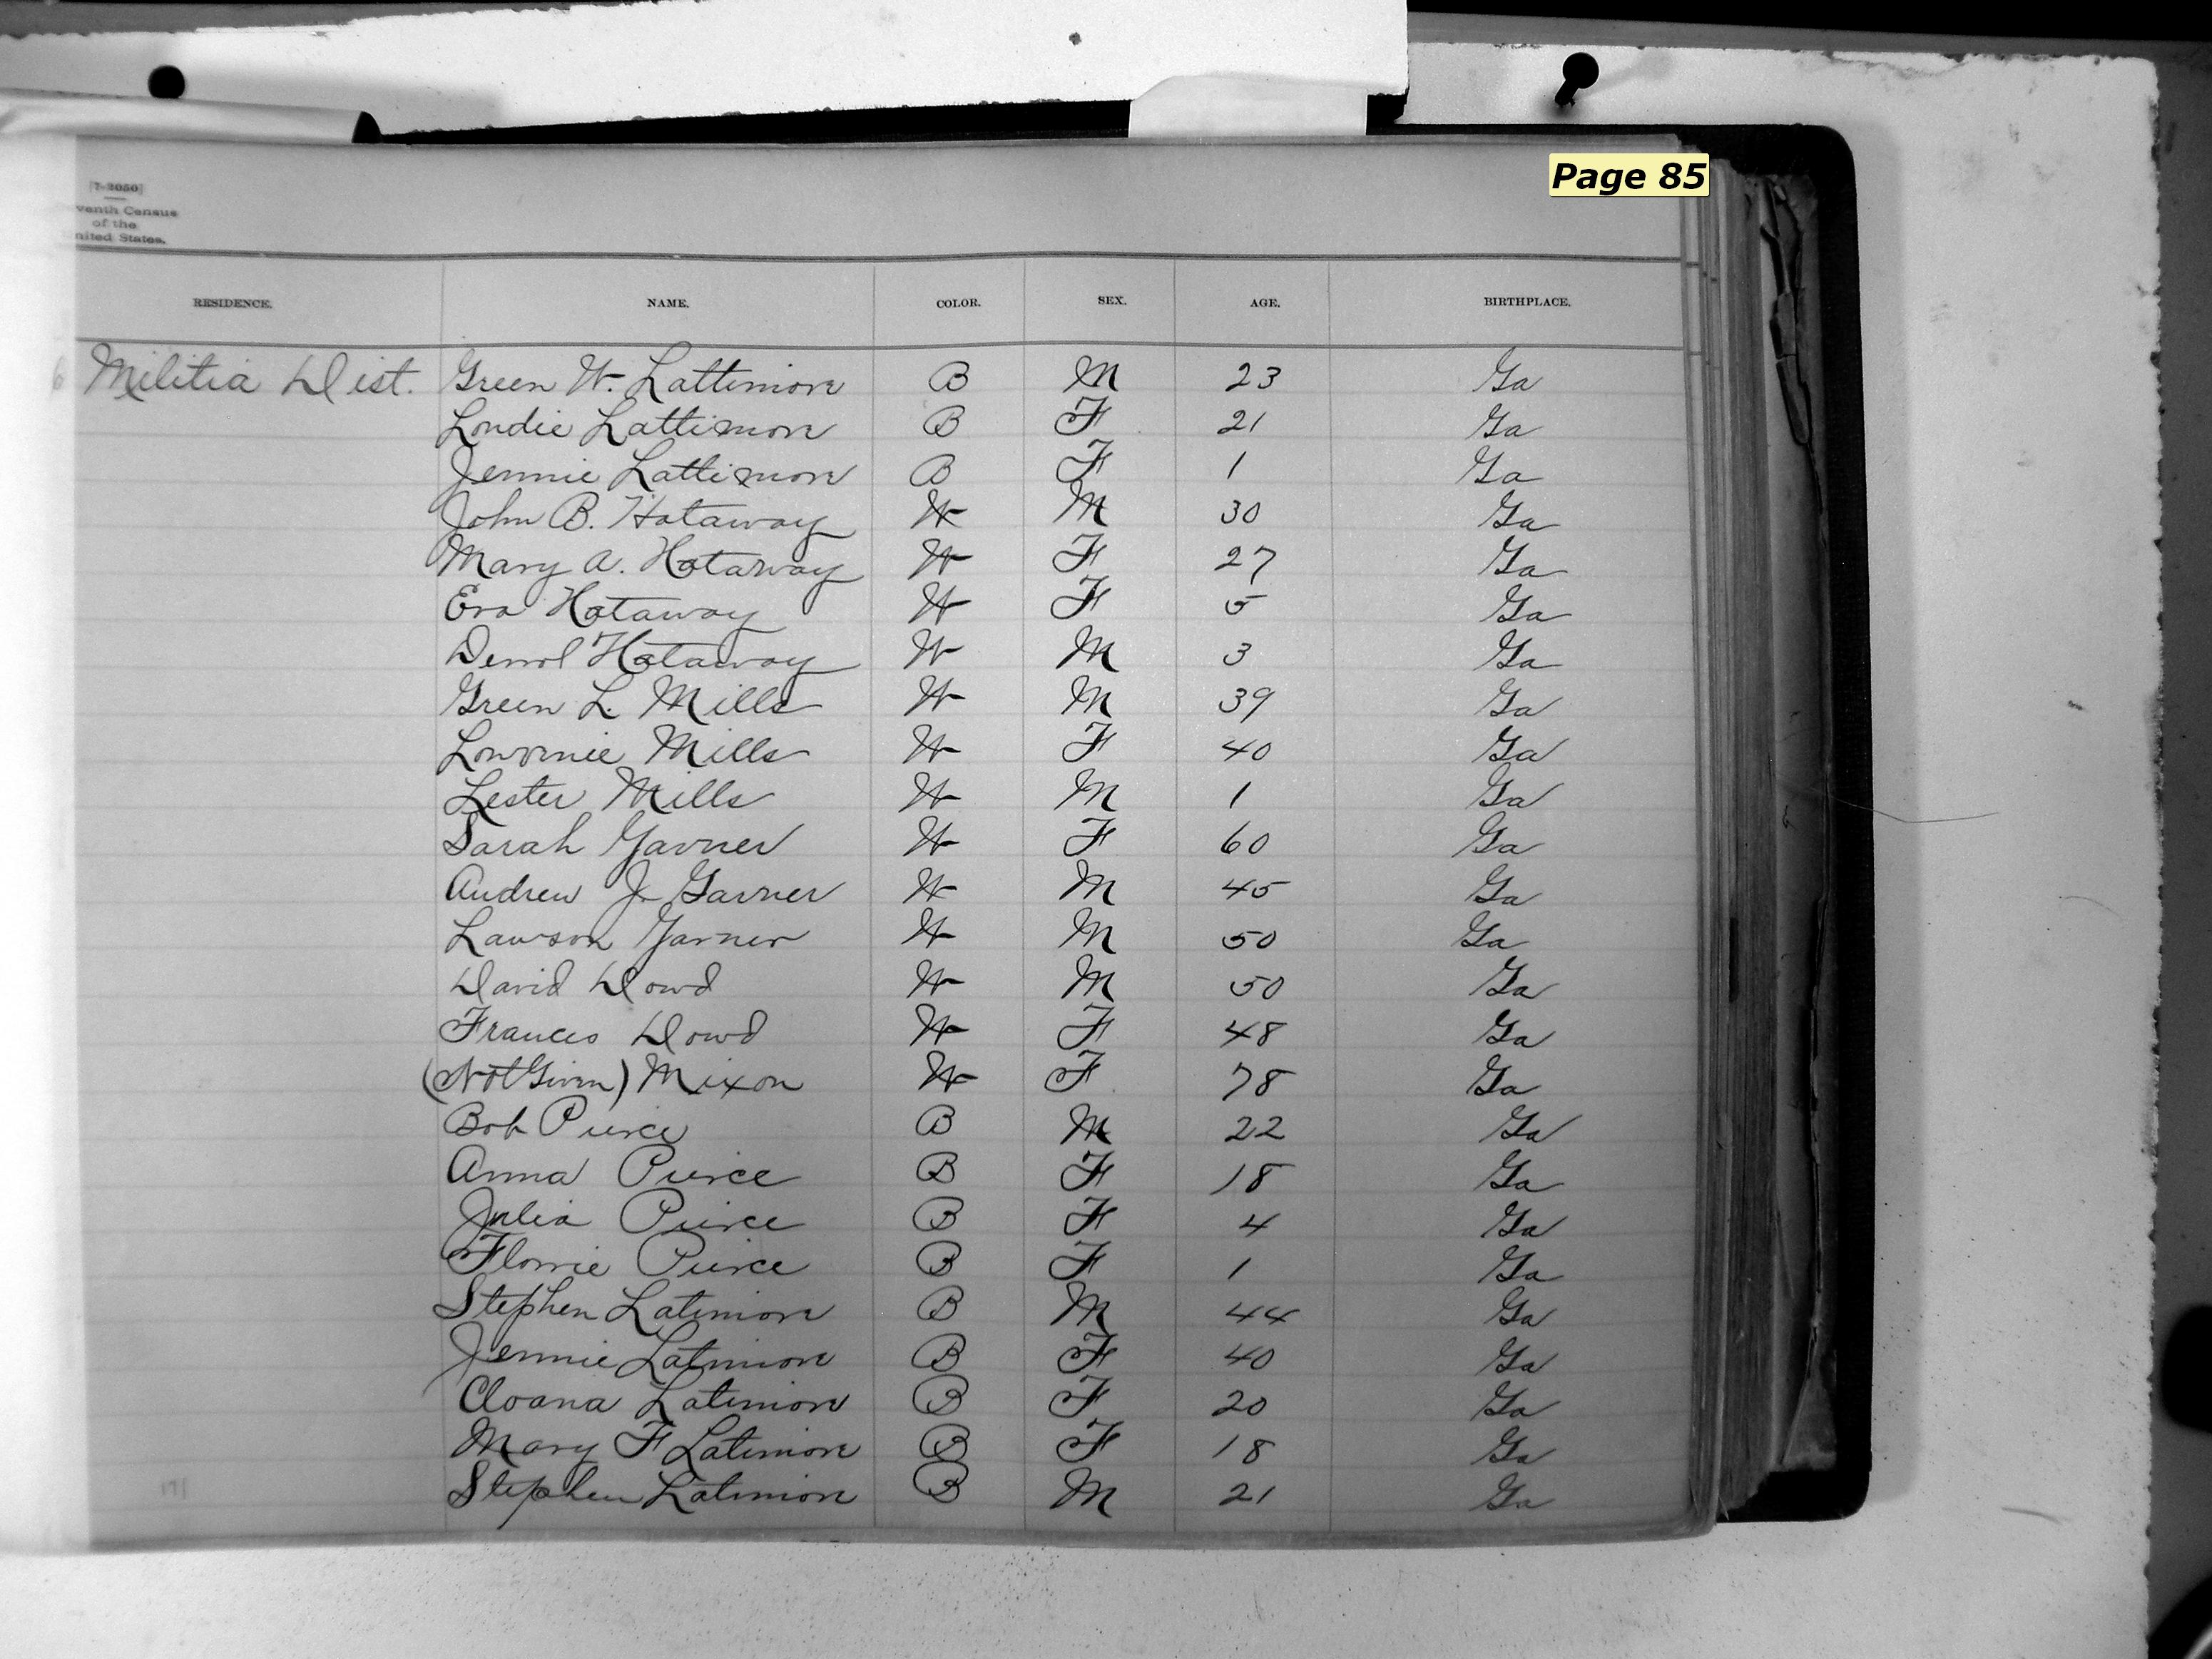 Page 85
[7-2050]
venth Census
of the
nited States.
RESIDENCE. NAME. COLOR. SEX. AGE. BIRTHPLACE.
6 Militia Dist. Green W. Lattimore B M 23 Ga
Londie Lattimore B F 21 Ga
Jennie Lattimore B F 1 Ga
John B. Hataway W M 30 Ga
Mary A. Hataway W F 27 Ga
Eva Hataway W F 5 Ga
Hataway W M 3 Ga
Green L. Mills W M 39 Ga
Mills W F 40 Ga
Lester Mills W M 1 Ga
Sarah Garner W F 60 Ga
Andrew J. Garner W M 45 Ga
Lawson Garner W M 50 Ga
David Dowd W M 50 Ga
Frances Dowd W F 48 Ga
(Not Given) Mixon W F 78 Ga
Bob Pierce B M 22 Ga
Anna Pierce B F 18 Ga
Julia Pierce B F 4 Ga
Florrie Pierce B F 1 Ga
Stephen Latimore B M 44 Ga
Jennie Latimore B F 40 Ga
Cloana Latimore B F 20 Ga
Mary F Latimore B F 18 Ga
Stephen Latimore B M 21 Ga
171